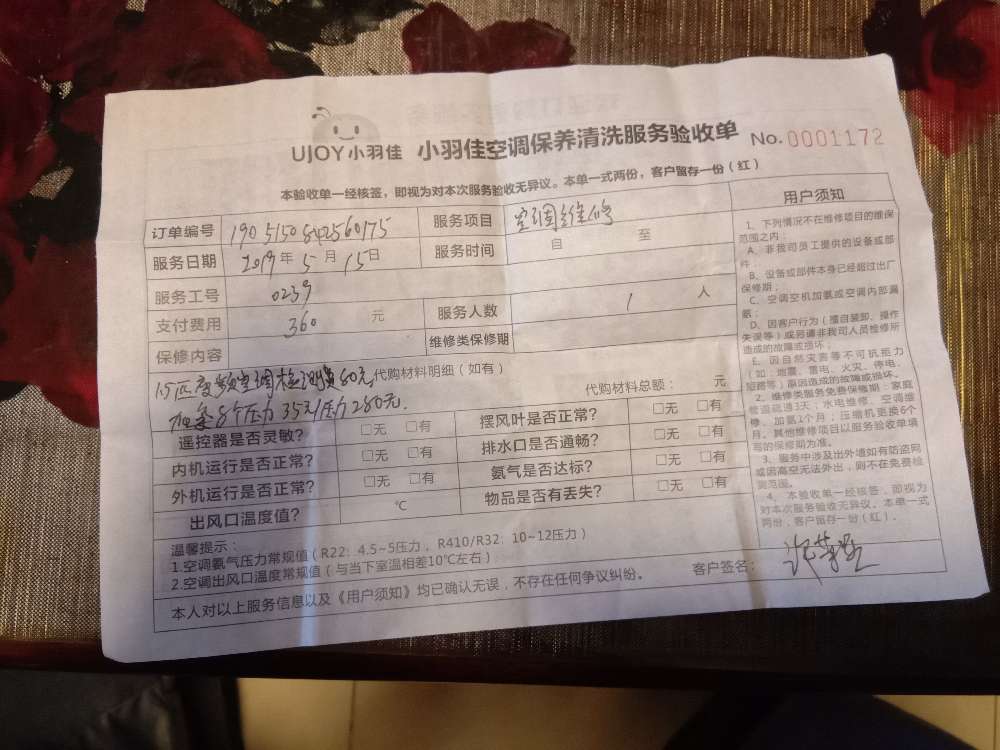 UJOY小羽佳 小羽佳空调保养清洗服务验收单 No.0001172
本验收单一经核签，即视为对本次服务验收无异议。本单一式两份，客户留存一份（红）
订单编号 1905150842560175 服务项目 空调维修
服务日期 2019年5月15日 服务时间 自 至
服务工号 0239
支付费用 360 元 服务人数 1 人
保修内容 维修类保修期
代购材料明细（如有）
1.5匹变频空调检测费80元
代购材料总额： 元
加氨8个压力35元/压力280元.
遥控器是否灵敏？ □无 □有 摆风叶是否正常？ □无 □有
内机运行是否正常？ □无 □有 排水口是否通畅？ □无 □有
外机运行是否正常？ □无 □有 氨气是否达标？ □无 □有
出风口温度值？ ℃ 物品是否有丢失？ □无 □有
温馨提示：
1.空调氨气压力常规值（R22：4.5~5压力，R410/R32：10~12压力）
2.空调出风口温度常规值（与当下室温相差10℃左右）
客户签名：
本人对以上服务信息以及《用户须知》均已确认无误，不存在任何争议纠纷。
用户须知
1、下列情况不在维修项目的维保
范围之内：
A、非我司员工提供的设备或部
件；
B、设备或部件本身已经超过出厂
保修期；
C、空调空机加氨或空调内部漏
氨；
D、因客户行为（擅自装卸、操作
失误等）或另请非我司人员检修所
造成的故障或损坏；
E、因自然灾害等不可抗拒力
（如：地震、雷电、火灾、停电、
短路等）原因造成的故障或损坏。
2、维修类服务免费保修期：家庭
管道疏通3天，水电维修、空调维
修、加氨1个月；压缩机更换6个
月。其他维修项目以服务验收单填
写的保修期为准。
3、服务中涉及出外墙如有防盗网
或因高空无法外出，则不在免费检
测范围。
4、本验收单一经核签，即视为
对本次服务验收无异议。本单一式
两份，客户留存一份（红）。